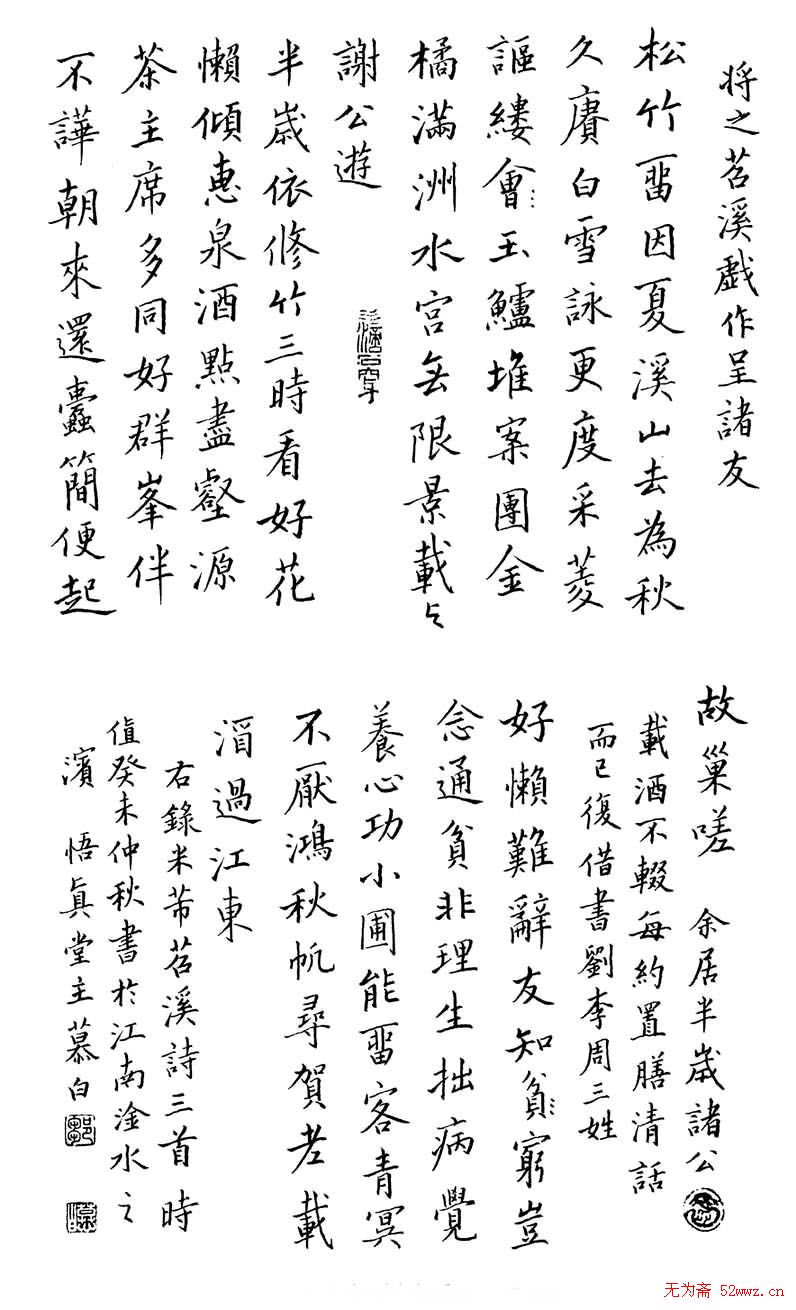 将之苕溪戯作呈諸友
松竹畱因夏溪山去為秋
久賡白雪詠更度采菱
謳縷會玉鱸堆案團金
橘滿洲水宮無限景載与
謝公遊
半歲依修竹三時看好花
懶傾惠泉酒點盡壑源
茶主席多同好群峯伴
不譁朝來還蠹簡便起
故巢嗟 余居半歲諸公
載酒不輟每約置膳清話
而已復借書劉李周三姓
好懶難辭友知貧窮豈
念通貧非理生拙病覺
養心功小圃能畱客青冥
不厭鴻秋帆尋賀老載
酒過江東
右錄米芾苕溪詩三首 時
值癸未仲秋書於江南淦水之
濱 悟真堂主慕白
无为斋 52wwz.cn